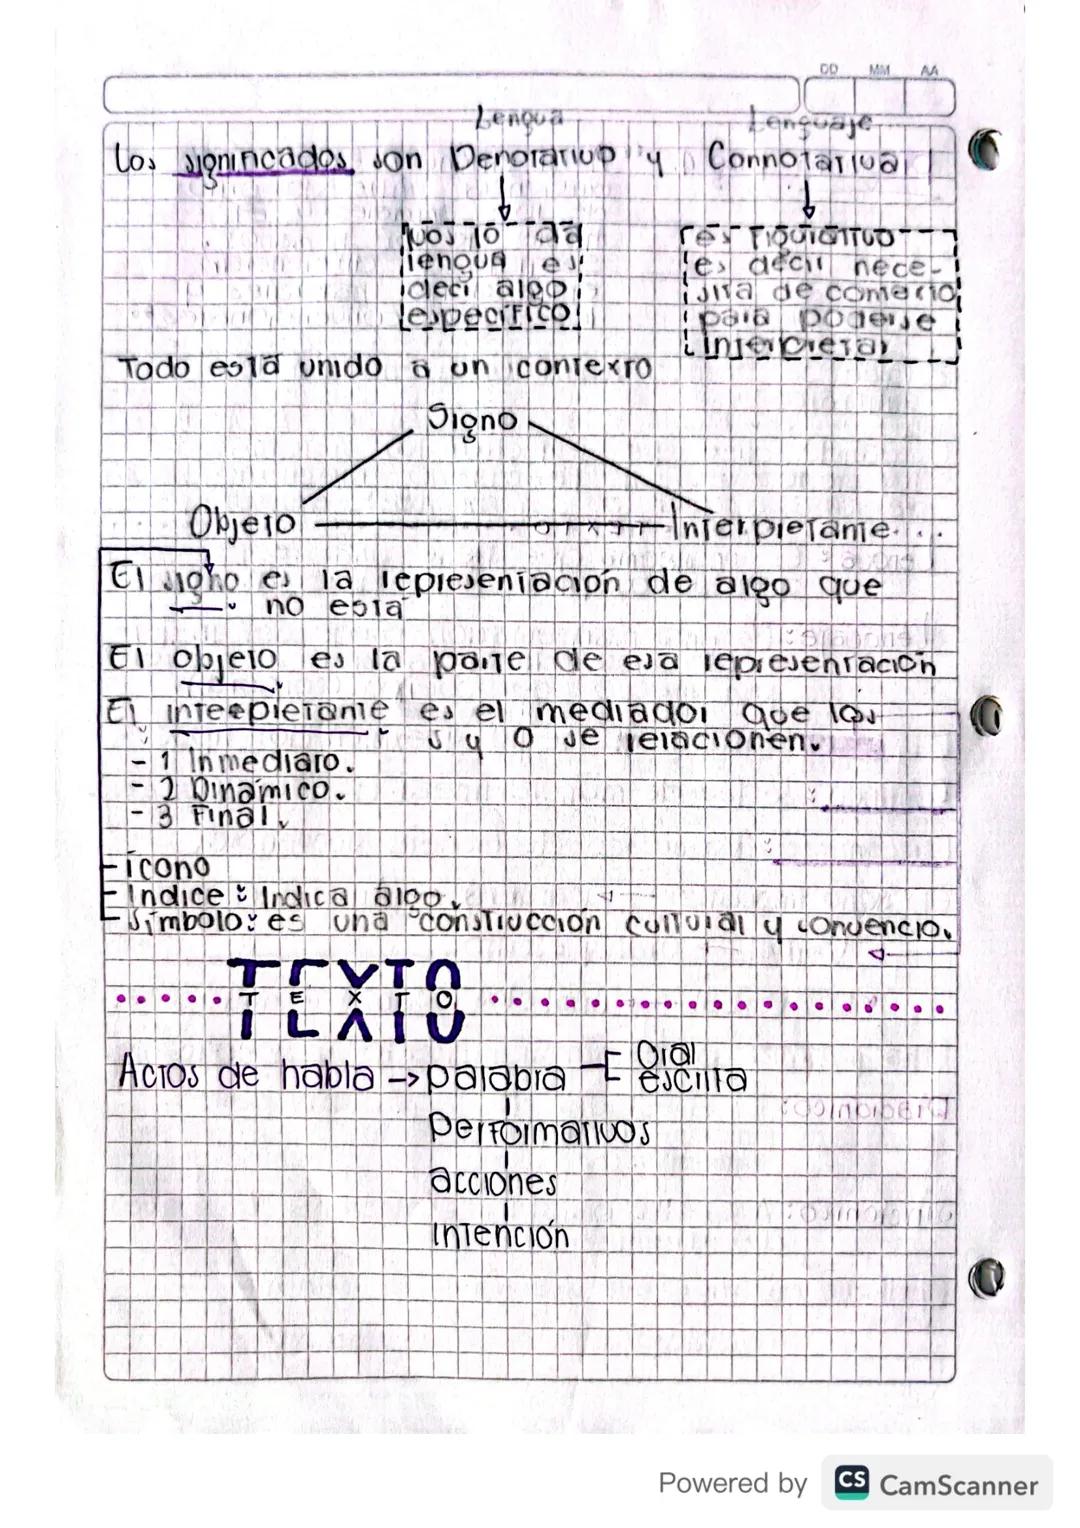 DD MM AA
Lengua Lenguaje
Los significados son Denotativo y Connotativa
nos lo da
lengua es
deci algo
especifico.
es figurativo
es decir nece-
sita de contexto
para poderse
interpretar
Todo está unido a un contexto
Signo
Objeto Interpretante
El signo es la representación de algo que
no está
El objeto es la parte de esa representación
El interpretante es el mediador que los
s y o se relacionen.
- 1 Inmediato.
- 2 Dinámico.
- 3 Final.
- ícono
- Indice: Indica algo.
- Símbolo: es una construcción cultural y convencio.
TEXTO
TEXTO
Actos de habla → palabra Oral
escrita
Performativos
acciones
Intención
Powered by CS CamScanner